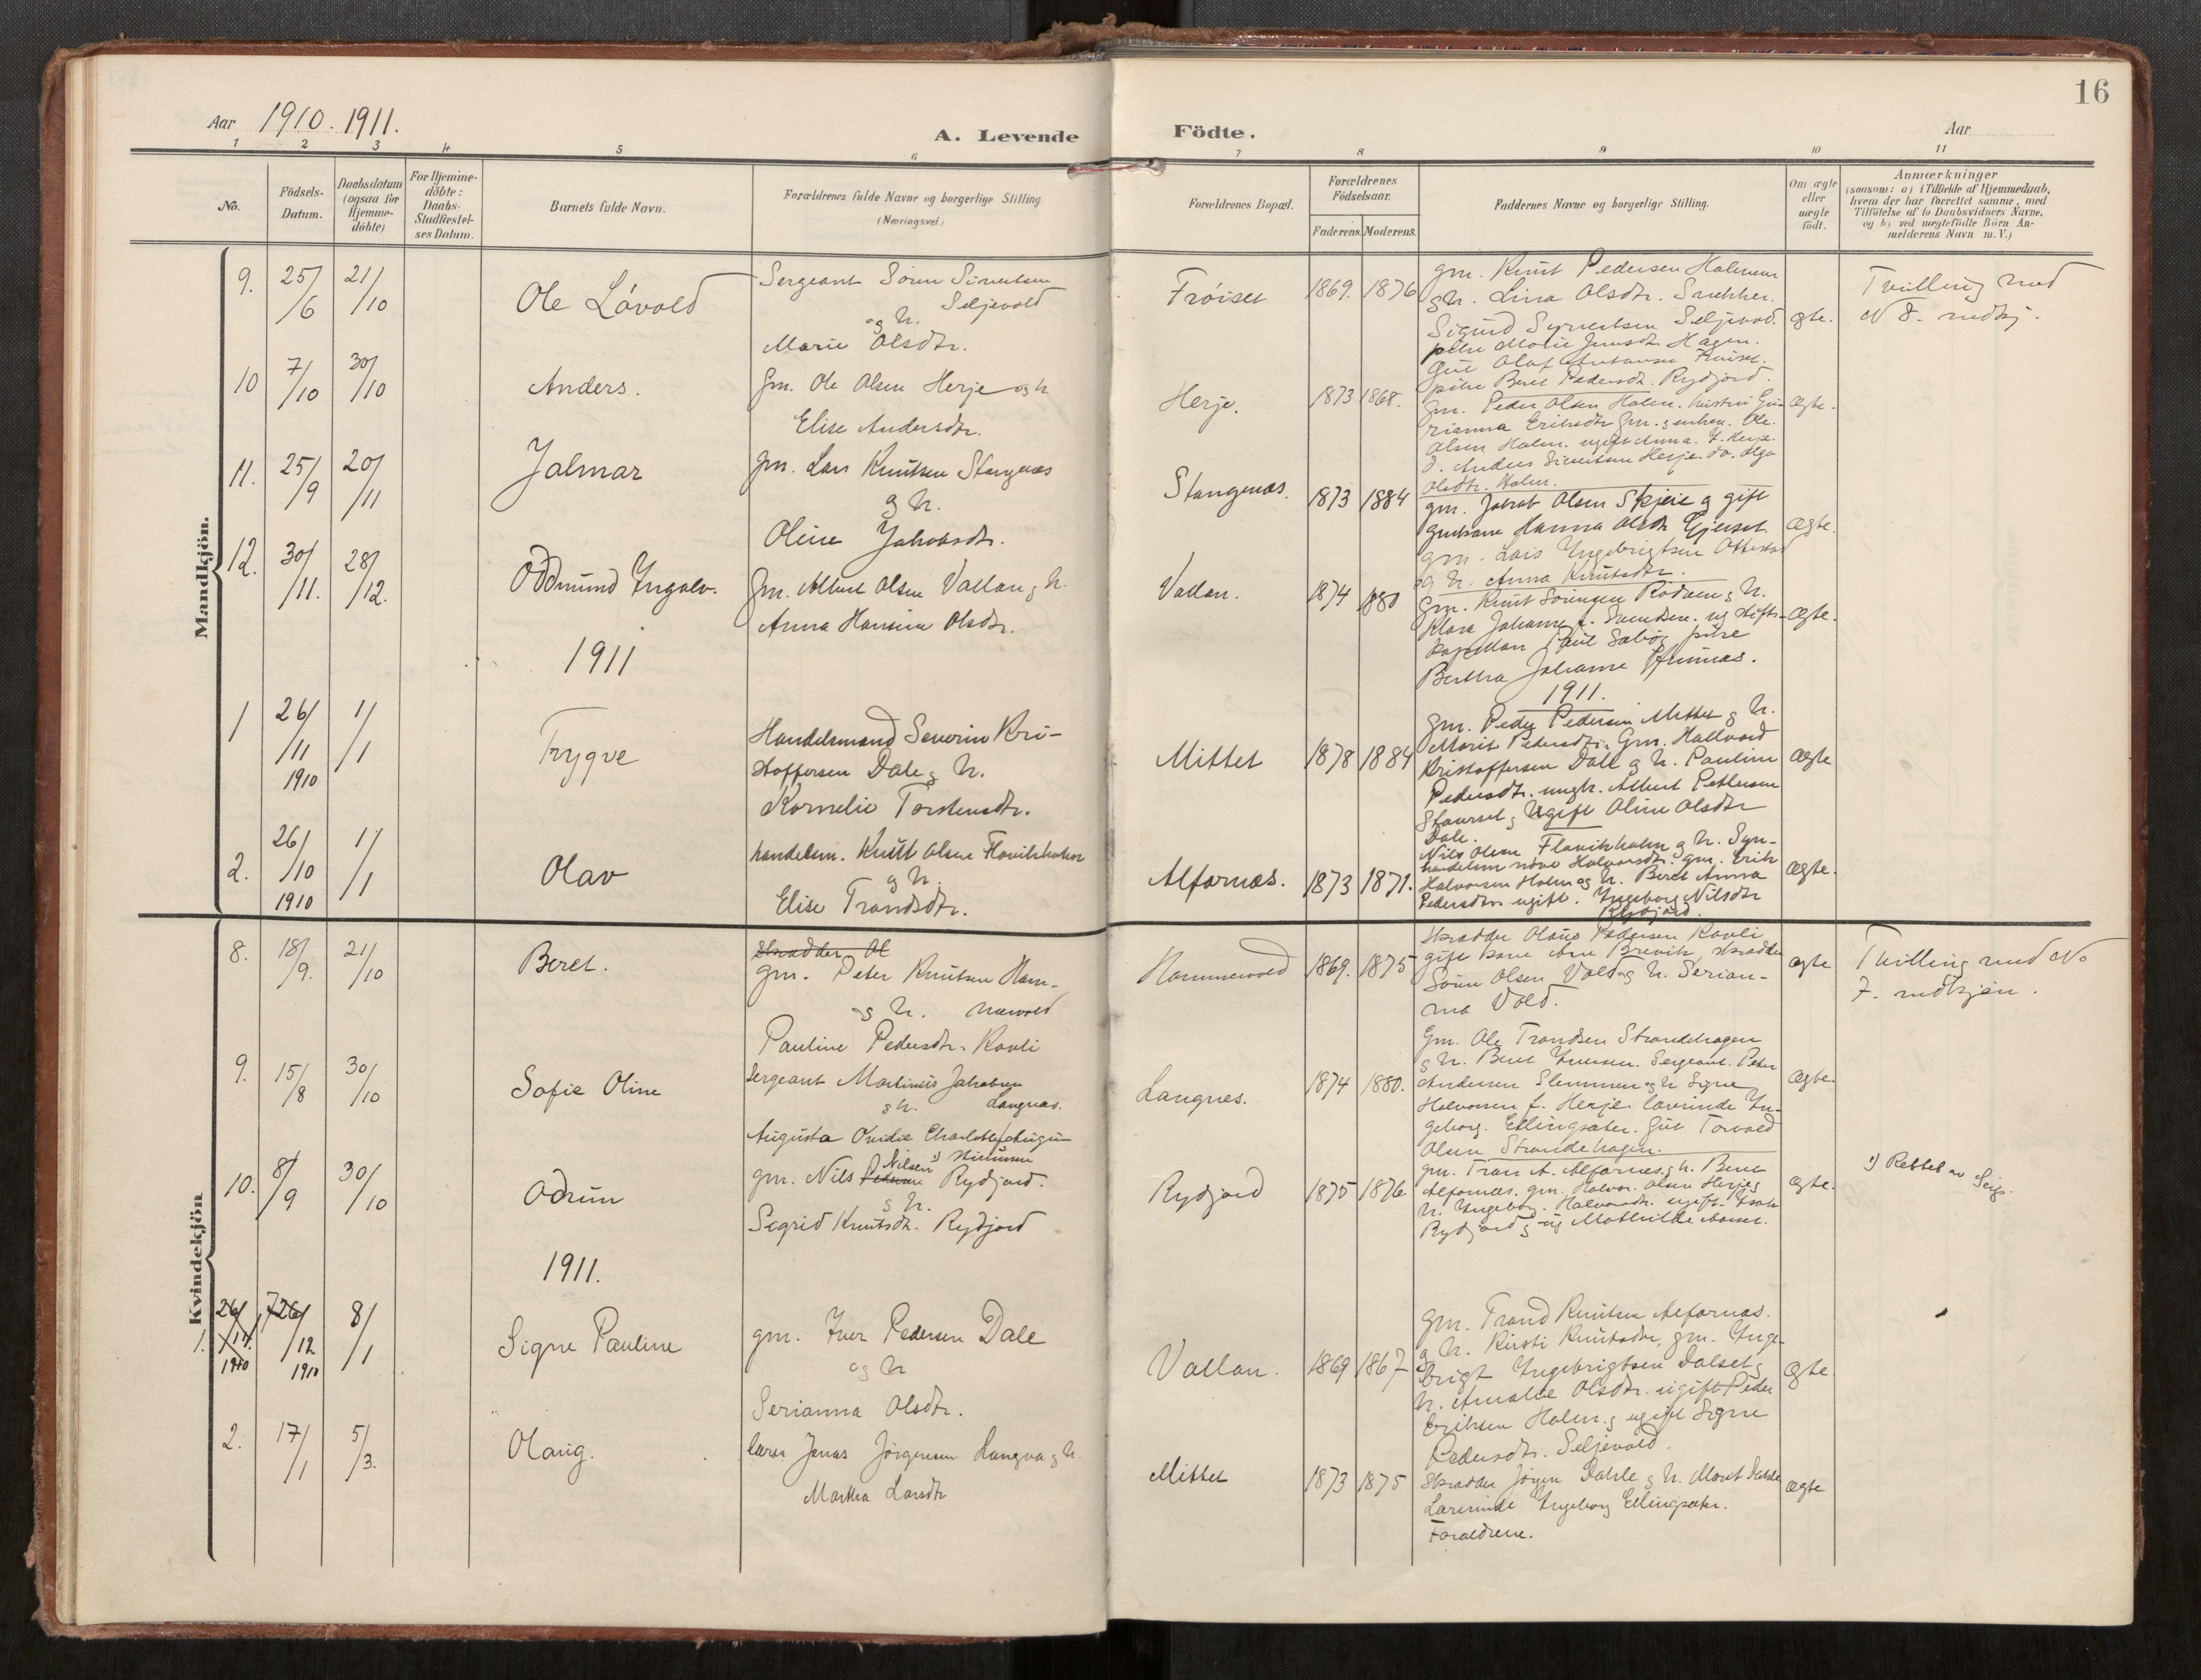 16
Aar 1910. 1911.
A. Levende Födte.
Aar
1 2 3 4 5 6 7 8 9 10 11
No.
Födsels-Datum.
Daabsdatum (ogsaa for Hjemme-döbte)
For Hjemme-döbte: Daabs-Stadfæstel-ses Datum.
Barnets fulde Navn.
Forældrenes fulde Navne og borgerlige Stilling.
(Næringsvei.)
Forældrenes Bopæl.
Forældrenes Födselsaar.
Faderens. Moderens.
Faddernes Navne og borgerlige Stilling.
Om ægte eller uægte födt.
Anmærkninger
(saasom: a) i Tilfælde af Hjemmedaab, hvem der har forrettet samme, med Tilföielse af to Daabsvidners Navne, og b) ved uægtefödte Börn An-melderens Navn m. V.)
Mandkjön.
9. 25/6 21/10 Ole Lövold
Sergeant Sören
Seljevold
og h.
Marie Olsdtr.
Fröiset 1869. 1876
gm. Knut Pedersen
g h. Lina Olsdtr.
Sigurd Seljevold.
pike Marie Hagen.
Gut Olaf
pike Beret Pedersdt. Rydjord.
ægte.
Tvilling med
N 8. mdkj.
10 7/10 30/10 Anders.
Gm. Ole Olsen Herje og h
Elise Andersdtr.
Herje. 1873 1868.
Gm. Peder Olsen Holm. hustru Gu-
rianna Eriksdtr. Gm. enkem. Ole
Olsen Holm. ugift Anna. I. Herje.
d. Anders Herje. do. Olga
Olsdtr. Holm.
ægte.
11. 25/9 20/11 Jalmar
gm. Lars Knutsen Stangenes
g h.
Oline Jakobsdtr.
Stangenæs. 1873 1884
gm. Jakob Olsen Skjeie g gift
Hanna Olsdtr
gm. Lars Ingebrigtsen
og h. Anna Knutsdtr.
ægte.
12. 30/11. 28/12. Oddmund Ingolv.
Gm. Albert Olsen Vollan g h.
Anna Hansine Olsdtr.
Vollan. 1874 1880
gm. Knut Sörensen Rödven g h.
Klara Johanne f. ug stifts-
kapellan Paul pike
Bertha Johanne
ægte.
1911
1911.
1 26/11 1910 1/1 Trygve
Handelsmand Severin Kri-
stoffersen Dale g h.
Kornelie Torstensdtr.
Mittet 1878 1884
gm. Peder Pedersen Mittet g h.
Marit Pedersdtr. Gm. Hallvard
Kristoffersen Dale g h. Pauline
Pedersdtr. ungk. Albert Pettersen
g ugift Oline Olsdtr
Dale.
ægte
2. 26/10 1910 1/1 Olav
handelsm. Knut Olsen Flovikholm
g h.
Elise Trondsdtr.
Alfarnæs. 1873 1871.
Nils Olsen Flovikholm g h. Syn-
handelsm növe Halvorsdtr. gm. Erik
Halvorsen Holm og h. Beret Anna
Pedersdtr ugift. Ingeborg Nilsdtr
Rydjord.
ægte.
Kvindekjön
8. 18/9. 21/10 Beret.
Skrædder Ol
gm. Peter Knutsen Ham-
g h. mervold
Pauline Pedersdtr. Rovli
Hammervold 1869. 1875
Skrædder Olaus Pedersen Rovli
gift kone Ane Brevik, skrædder
Sören Olsen Vold og h. Serian-
na Vold.
ægte
Tvilling med No
7. mdkjön.
9. 15/8 30/10 Sofie Oline
Sergeant Martinus Jakobsen
g h. Langnæs.
Augusta Ovidie Charlotte Augu-
Langnes. 1874 1880.
Gm. Ole Trondsen Strandehagen
g h. Beret Iversen. Sergeant Peter
Andersen Slemmen og h Signe
Halvorsen f. Herje. lærerinde In-
geborg. Ellingsæter. Gut Torvald
Olsen Strandehagen.
ægte.
10. 8/9 30/10 Odrun
gm. Nils Nilsen 1) Pedersen Rydjord.
g h.
Sigrid Knutsdt. Rydjord
Rydjord 1875 1876
gm. Tron A. Alfarnes g h. Beret
Alfarnæs. gm. Halvor Olsen Herje g
h. Ingeborg Halvorsdtr. ugift Isak
Rydjord g ug Mathilde
ægte.
1) Rettet av
1911.
1. 26/11 1910 26/12 1910 8/1 Signe Pauline
gm. Iver Pedersen Dale
og h
Serianna Olsdtr.
Vollan. 1869 1867
gm. Trond Knutsen Alfarnæs.
g h. Kirsti Knutsdtr, gm. Inge-
brigt Ingebrigtsen Dalset g
h. Amalie Olsdtr. ugift Peder
Eriksen Holm. g ugift Signe
Pedersdtr. Seljevold.
ægte.
2. 17/1 5/3. Olaug.
lærer Jonas Jörgensen Langva g h.
Martha Larsdtr
Mittet 1873 1875
Skrædder Jörgen Dahle g h. Marit Dahle
Lærerinde Ingeborg Ellingsæter.
Forældrene.
ægte